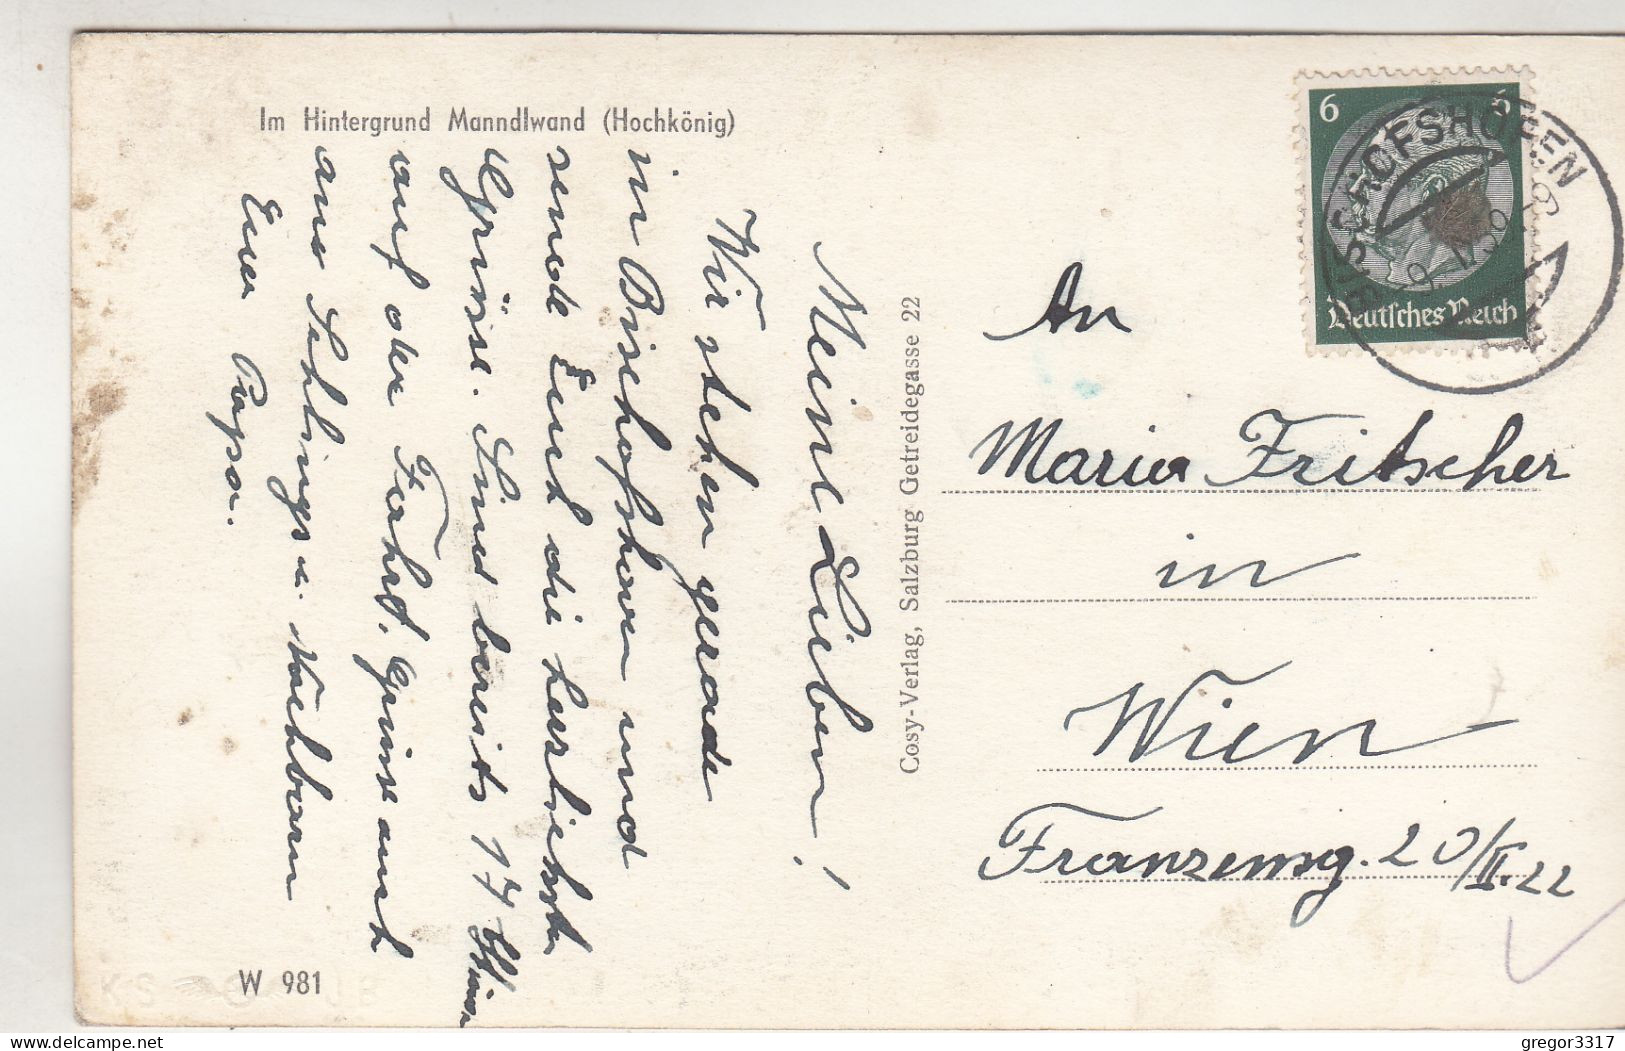 Im Hintergrund Manndlwand (Hochkönig)
Meine Lieben!
Wir stehen gerade
in Bischofshofen und
sende Euch die herzlichsten
Grüsse. Sind bereits 17 Stunden
auf der Fahrt. Grüsse auch
an
Euer Papa.
W 981
Cosy-Verlag, Salzburg Getreidegasse 22
6 6
Deutsches Reich
BISCHOFSHOFEN
An
Maria Fritscher
in
Wien
Franzensg. 20/II.22
delcampe.net
gregor3317